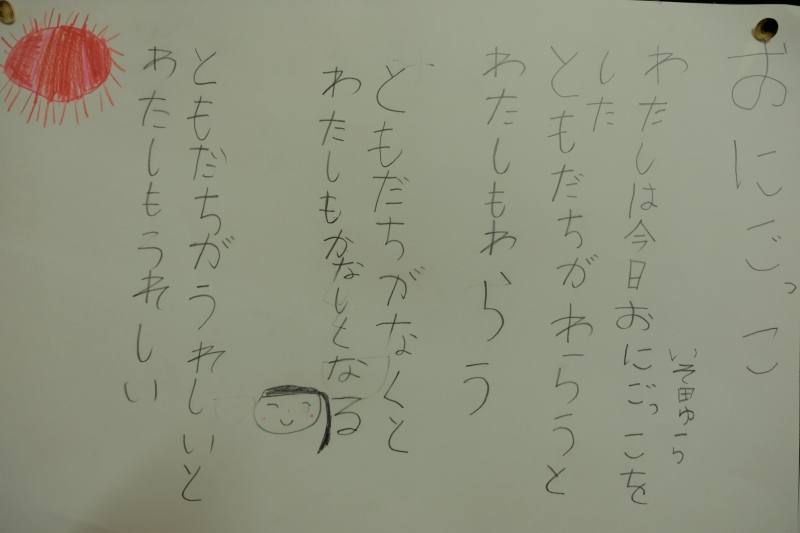 おにごっこ
いそ田ゆら
わたしは今日おにごっこを
した
ともだちがわらうと
わたしもわらう
ともだちがなくと
わたしもかなしとなる
ともだちがうれしいと
わたしもうれしい